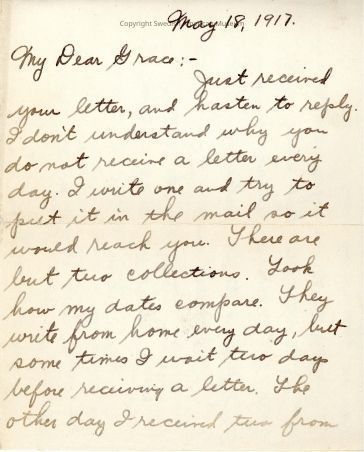 May 18, 1917.
My Dear Grace:-
Just received
your letter, and hasten to reply.
I don't understand why you
do not receive a letter every
day. I write one and try to
put it in the mail so it
would reach you. There are
but two collections. Look
how my dates compare. They
write from home every day, but
some times I wait two days
before receiving a letter. The
other day I received two from